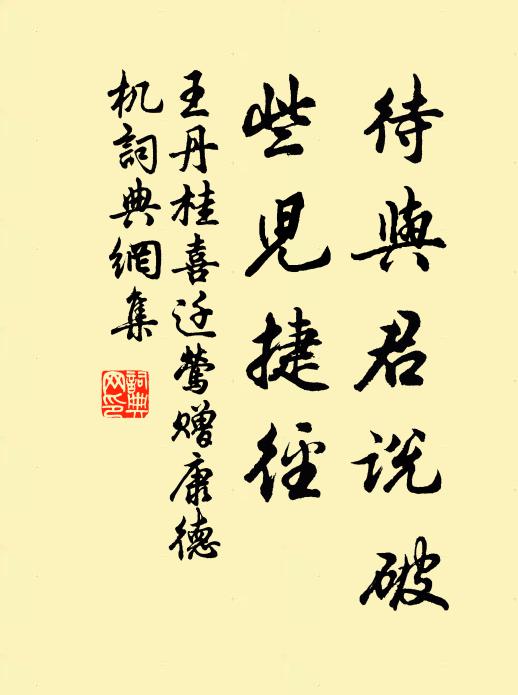 待與君说破
些兒捷徑
王丹桂喜迁莺赠康德
机詞典網集
詞典
网印